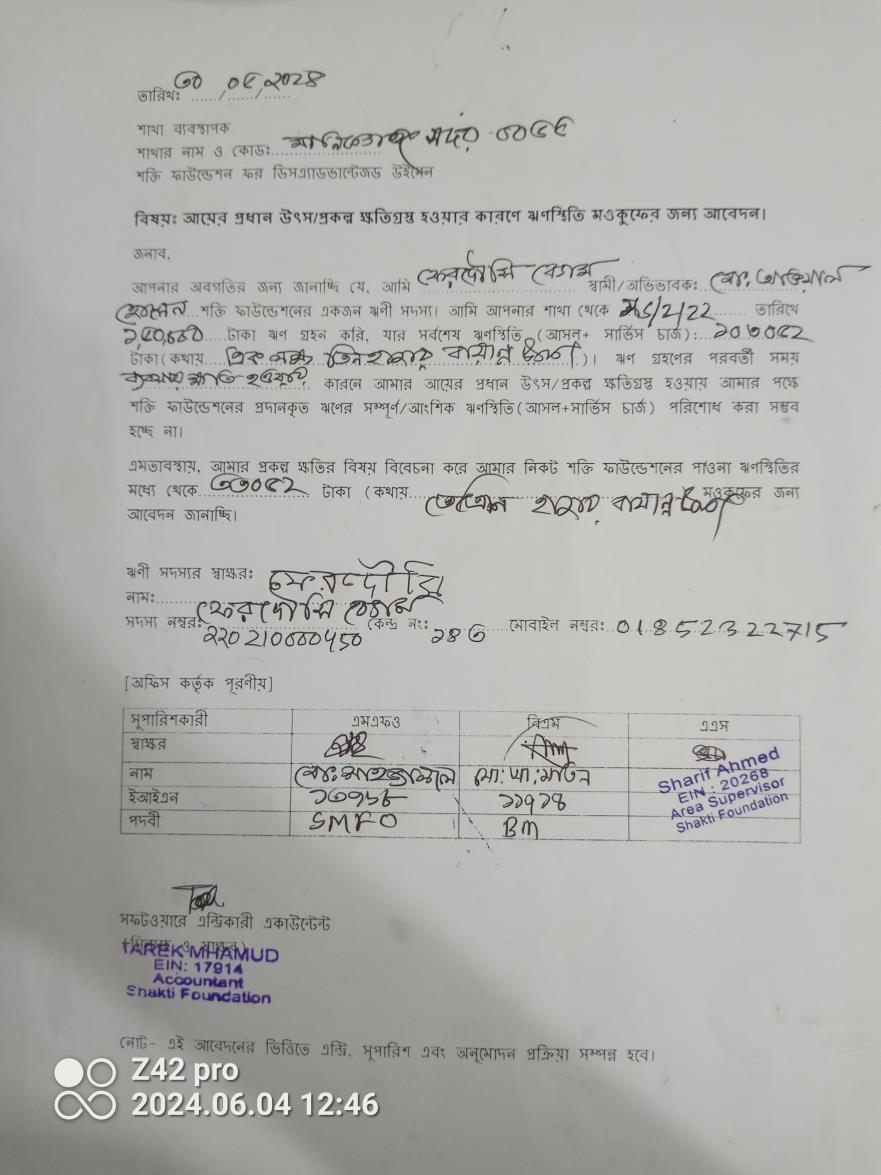 তারিখঃ ৩০/০৫/২০২৪
শাখা ব্যবস্থাপক
শাখার নাম ও কোডঃ সদর
শক্তি ফাউন্ডেশন ফর ডিসএ্যাডভান্টেজড উইমেন
বিষয়ঃ আয়ের প্রধান উৎস/প্রকল্প ক্ষতিগ্রস্থ হওয়ার কারণে ঋণস্থিতি মওকুফের জন্য আবেদন।
জনাব,
আপনার অবগতির জন্য জানাচ্ছি যে, আমি ফেরদৌসি বেগম স্বামী/অভিভাবক: মো:
হোসেন শক্তি ফাউন্ডেশনের একজন ঋণী সদস্য। আমি আপনার শাখা থেকে /2/22 তারিখে
টাকা ঋণ গ্রহন করি, যার সর্বশেষ ঋণস্থিতি (আসল+ সার্ভিস চার্জ): ১০৩০৫২
টাকা(কথায় এক লক্ষ তিন হাজার বায়ান্ন টাকা)। ঋণ গ্রহণের পরবর্তী সময়
ব্যবসায় ক্ষতি হওয়ায় কারনে আমার আয়ের প্রধান উৎস/প্রকল্প ক্ষতিগ্রস্থ হওয়ায় আমার পক্ষে
শক্তি ফাউন্ডেশনের প্রদানকৃত ঋণের সম্পূর্ণ/আংশিক ঋণস্থিতি(আসল+সার্ভিস চার্জ) পরিশোধ করা সম্ভব
হচ্ছে না।
এমতাবস্থায়, আমার প্রকল্প ক্ষতির বিষয় বিবেচনা করে আমার নিকট শক্তি ফাউন্ডেশনের পাওনা ঋণস্থিতির
মধ্যে থেকে ৩৩০৫২ টাকা (কথায় হাজার বায়ান্ন টাকা মওকুফের জন্য
আবেদন জানাচ্ছি।
ঋণী সদস্যর স্বাক্ষরঃ ফেরদৌসি
নাম: ফেরদৌসি বেগম
সদস্য নম্বর: কেন্দ্র নং: মোবাইল নম্বর: 01852322715
[অফিস কর্তৃক পূরণীয়]
সুপারিশকারী এমএফও বিএম এএস
স্বাক্ষর
নাম Sharif Ahmed
ইআইএন ১১৭২৪ EIN : 20268
পদবী SMFO BM Area Supervisor
Shakti Foundation
সফটওয়ারে এন্ট্রিকারী একাউন্টেন্ট
TAREK MHAMUD
EIN: 17914
Accountant
Shakti Foundation
নোট- এই আবেদনের ভিত্তিতে এন্ট্রি, সুপারিশ এবং অনুমোদন প্রক্রিয়া সম্পন্ন হবে।
Z42 pro
2024.06.04 12:46